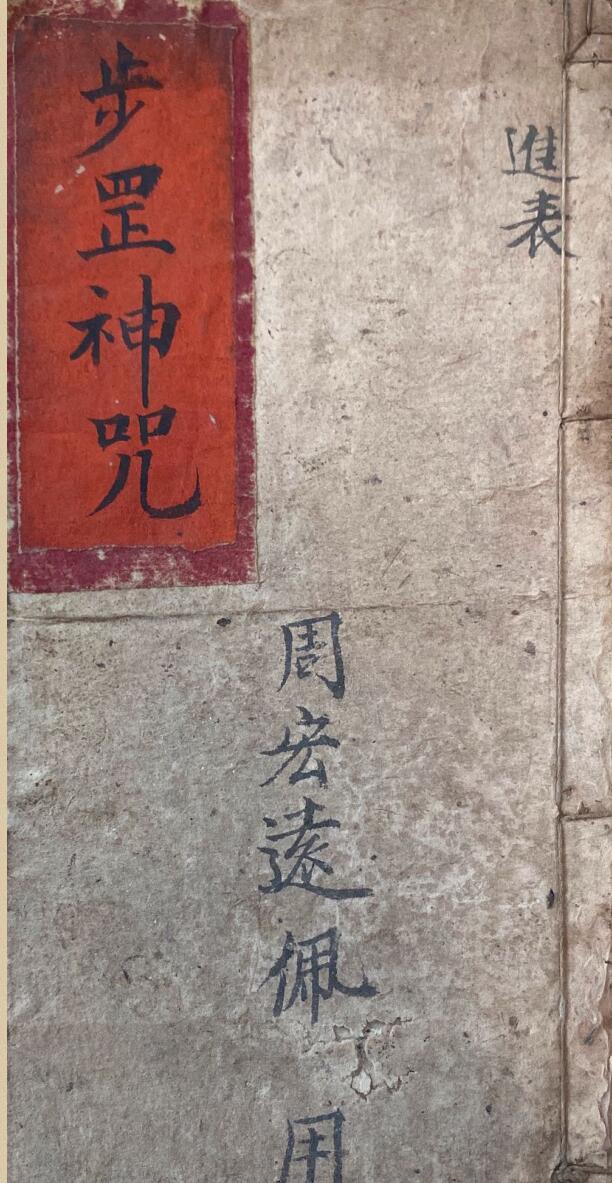 進表
周宏遠佩用
步罡神咒